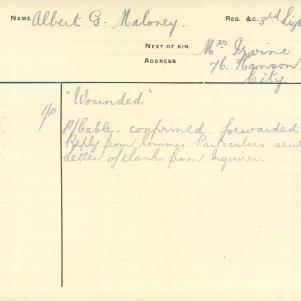 NAME Albert G. Maloney. REG. &C. 3rd Light
NEXT OF KIN Mrs Irvine
ADDRESS 76. Hanson
City
"Wounded"
1/p P/Cable - confirmed, forwarded
Reply from Commrs. Particulars sent
Letter of thanks from Inquirer.